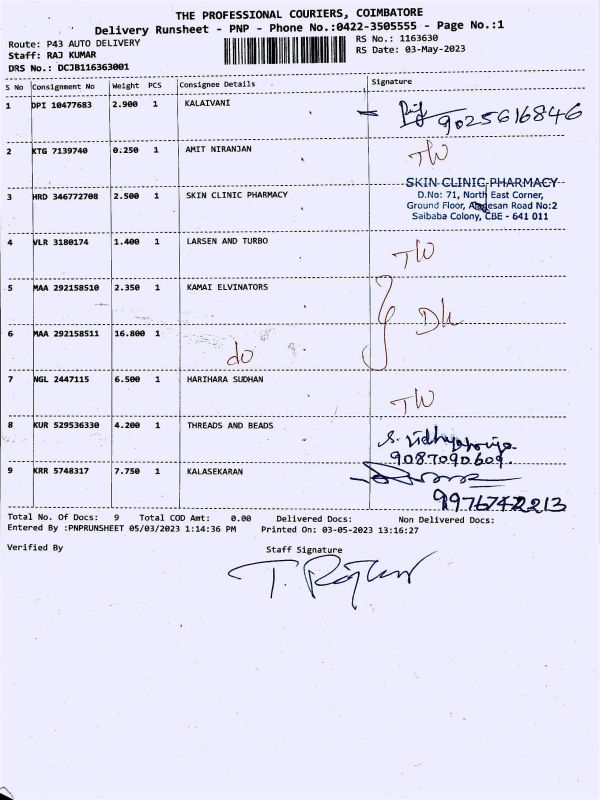 THE PROFESSIONAL COURIERS, COIMBATORE
Delivery Runsheet - PNP - Phone No.:0422-3505555 - Page No.:1
Route: P43 AUTO DELIVERY
RS No.: 1163630
Staff: RAJ KUMAR
RS Date: 03-May-2023
DRS No.: DCJB116363001
S No Consignment No Weight PCS Consignee Details Signature
1 DPI 10477683 2.900 1 KALAIVANI
9025616846
2 KTG 7139740 0.250 1 AMIT NIRANJAN
SKIN CLINIC PHARMACY
3 HRD 346772708 2.500 1 SKIN CLINIC PHARMACY
D.No: 71, North East Corner,
Ground Floor, Road No:2
Saibaba Colony, CBE - 641 011
4 VLR 3180174 1.400 1 LARSEN AND TURBO
5 MAA 292158510 2.350 1 KAMAI ELVINATORS
6 MAA 292158511 16.800 1 do
7 NGL 2447115 6.500 1 HARIHARA SUDHAN
8 KUR 529536330 4.200 1 THREADS AND BEADS
9087090609.
9 KRR 5748317 7.750 1 KALASEKARAN
Total No. Of Docs: 9 Total COD Amt: 0.00 Delivered Docs: Non Delivered Docs:
Entered By :PNPRUNSHEET 05/03/2023 1:14:36 PM Printed On: 03-05-2023 13:16:27
Verified By Staff Signature